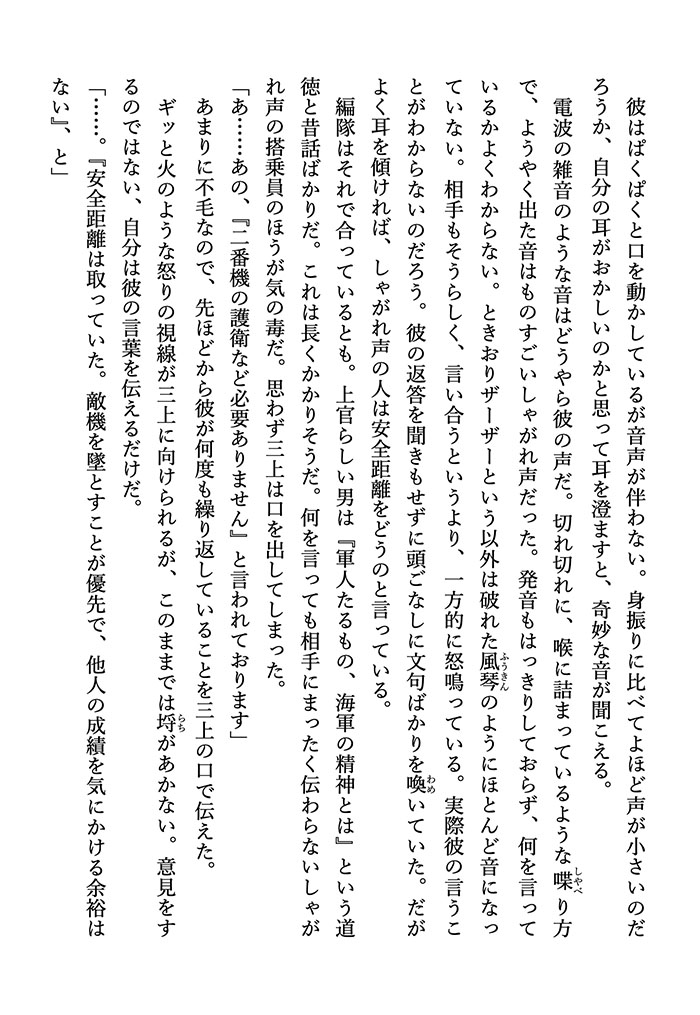 彼はぱくぱくと口を動かしているが音声が伴わない。身振りに比べてよほど声が小さいのだ
ろうか、自分の耳がおかしいのかと思って耳を澄ますと、奇妙な音が聞こえる。
　電波の雑音のような音はどうやら彼の声だ。切れ切れに、喉に詰まっているような喋り方
で、ようやく出た音はものすごいしゃがれ声だった。発音もはっきりしておらず、何を言って
いるかよくわからない。ときおりザーザーという以外は破れた風琴のようにほとんど音になっ
ていない。相手もそうらしく、言い合うというより、一方的に怒鳴っている。実際彼の言うこ
とがわからないのだろう。彼の返答を聞きもせずに頭ごなしに文句ばかりを喚いていた。だが
よく耳を傾ければ、しゃがれ声の人は安全距離をどうのと言っている。
　編隊はそれで合っているとも。上官らしい男は『軍人たるもの、海軍の精神とは』という道
徳と昔話ばかりだ。これは長くかかりそうだ。何を言っても相手にまったく伝わらないしゃが
れ声の搭乗員のほうが気の毒だ。思わず三上は口を出してしまった。
「あ……あの、『二番機の護衛など必要ありません』と言われております」
　あまりに不毛なので、先ほどから彼が何度も繰り返していることを三上の口で伝えた。
　ギッと火のような怒りの視線が三上に向けられるが、このままでは埒があかない。意見をす
るのではない、自分は彼の言葉を伝えるだけだ。
「……。『安全距離は取っていた。敵機を墜とすことが優先で、他人の成績を気にかける余裕は
ない』、と」